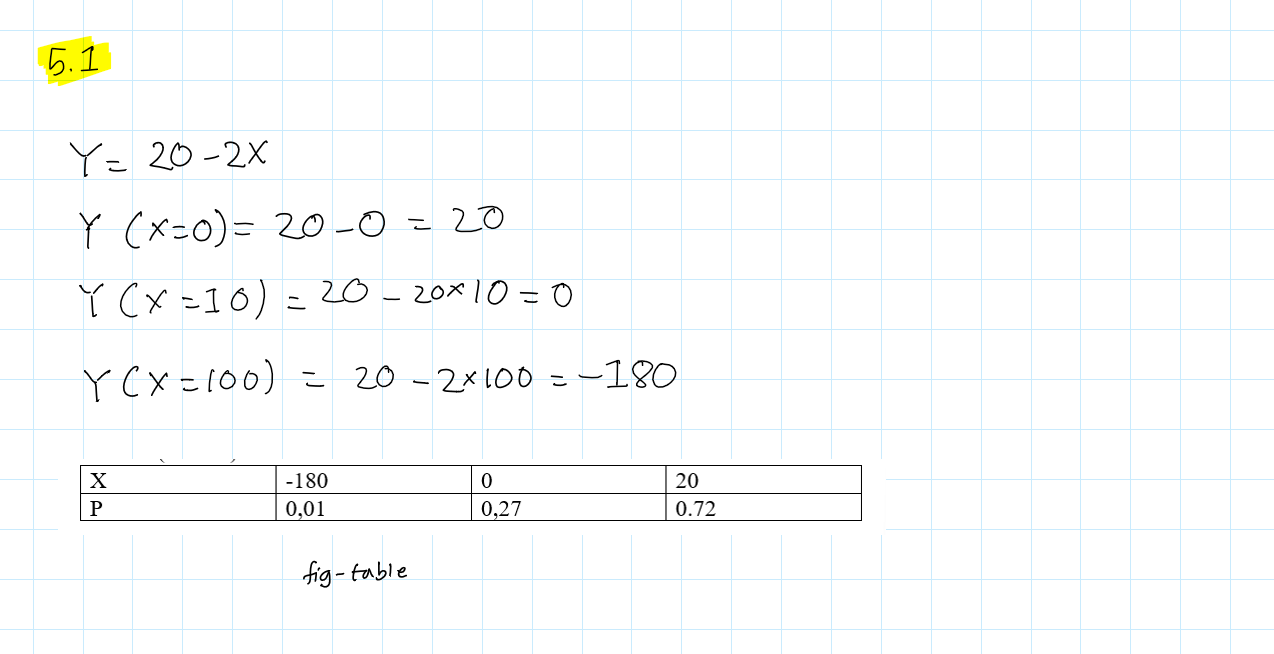 5.1
Y = 20 - 2X
Y (X=0) = 20 - 0 = 20
Y (X=10) = 20 - 20×10 = 0
Y (X=100) = 20 - 2×100 = -180
X -180 0 20
P 0,01 0,27 0.72
fig-table